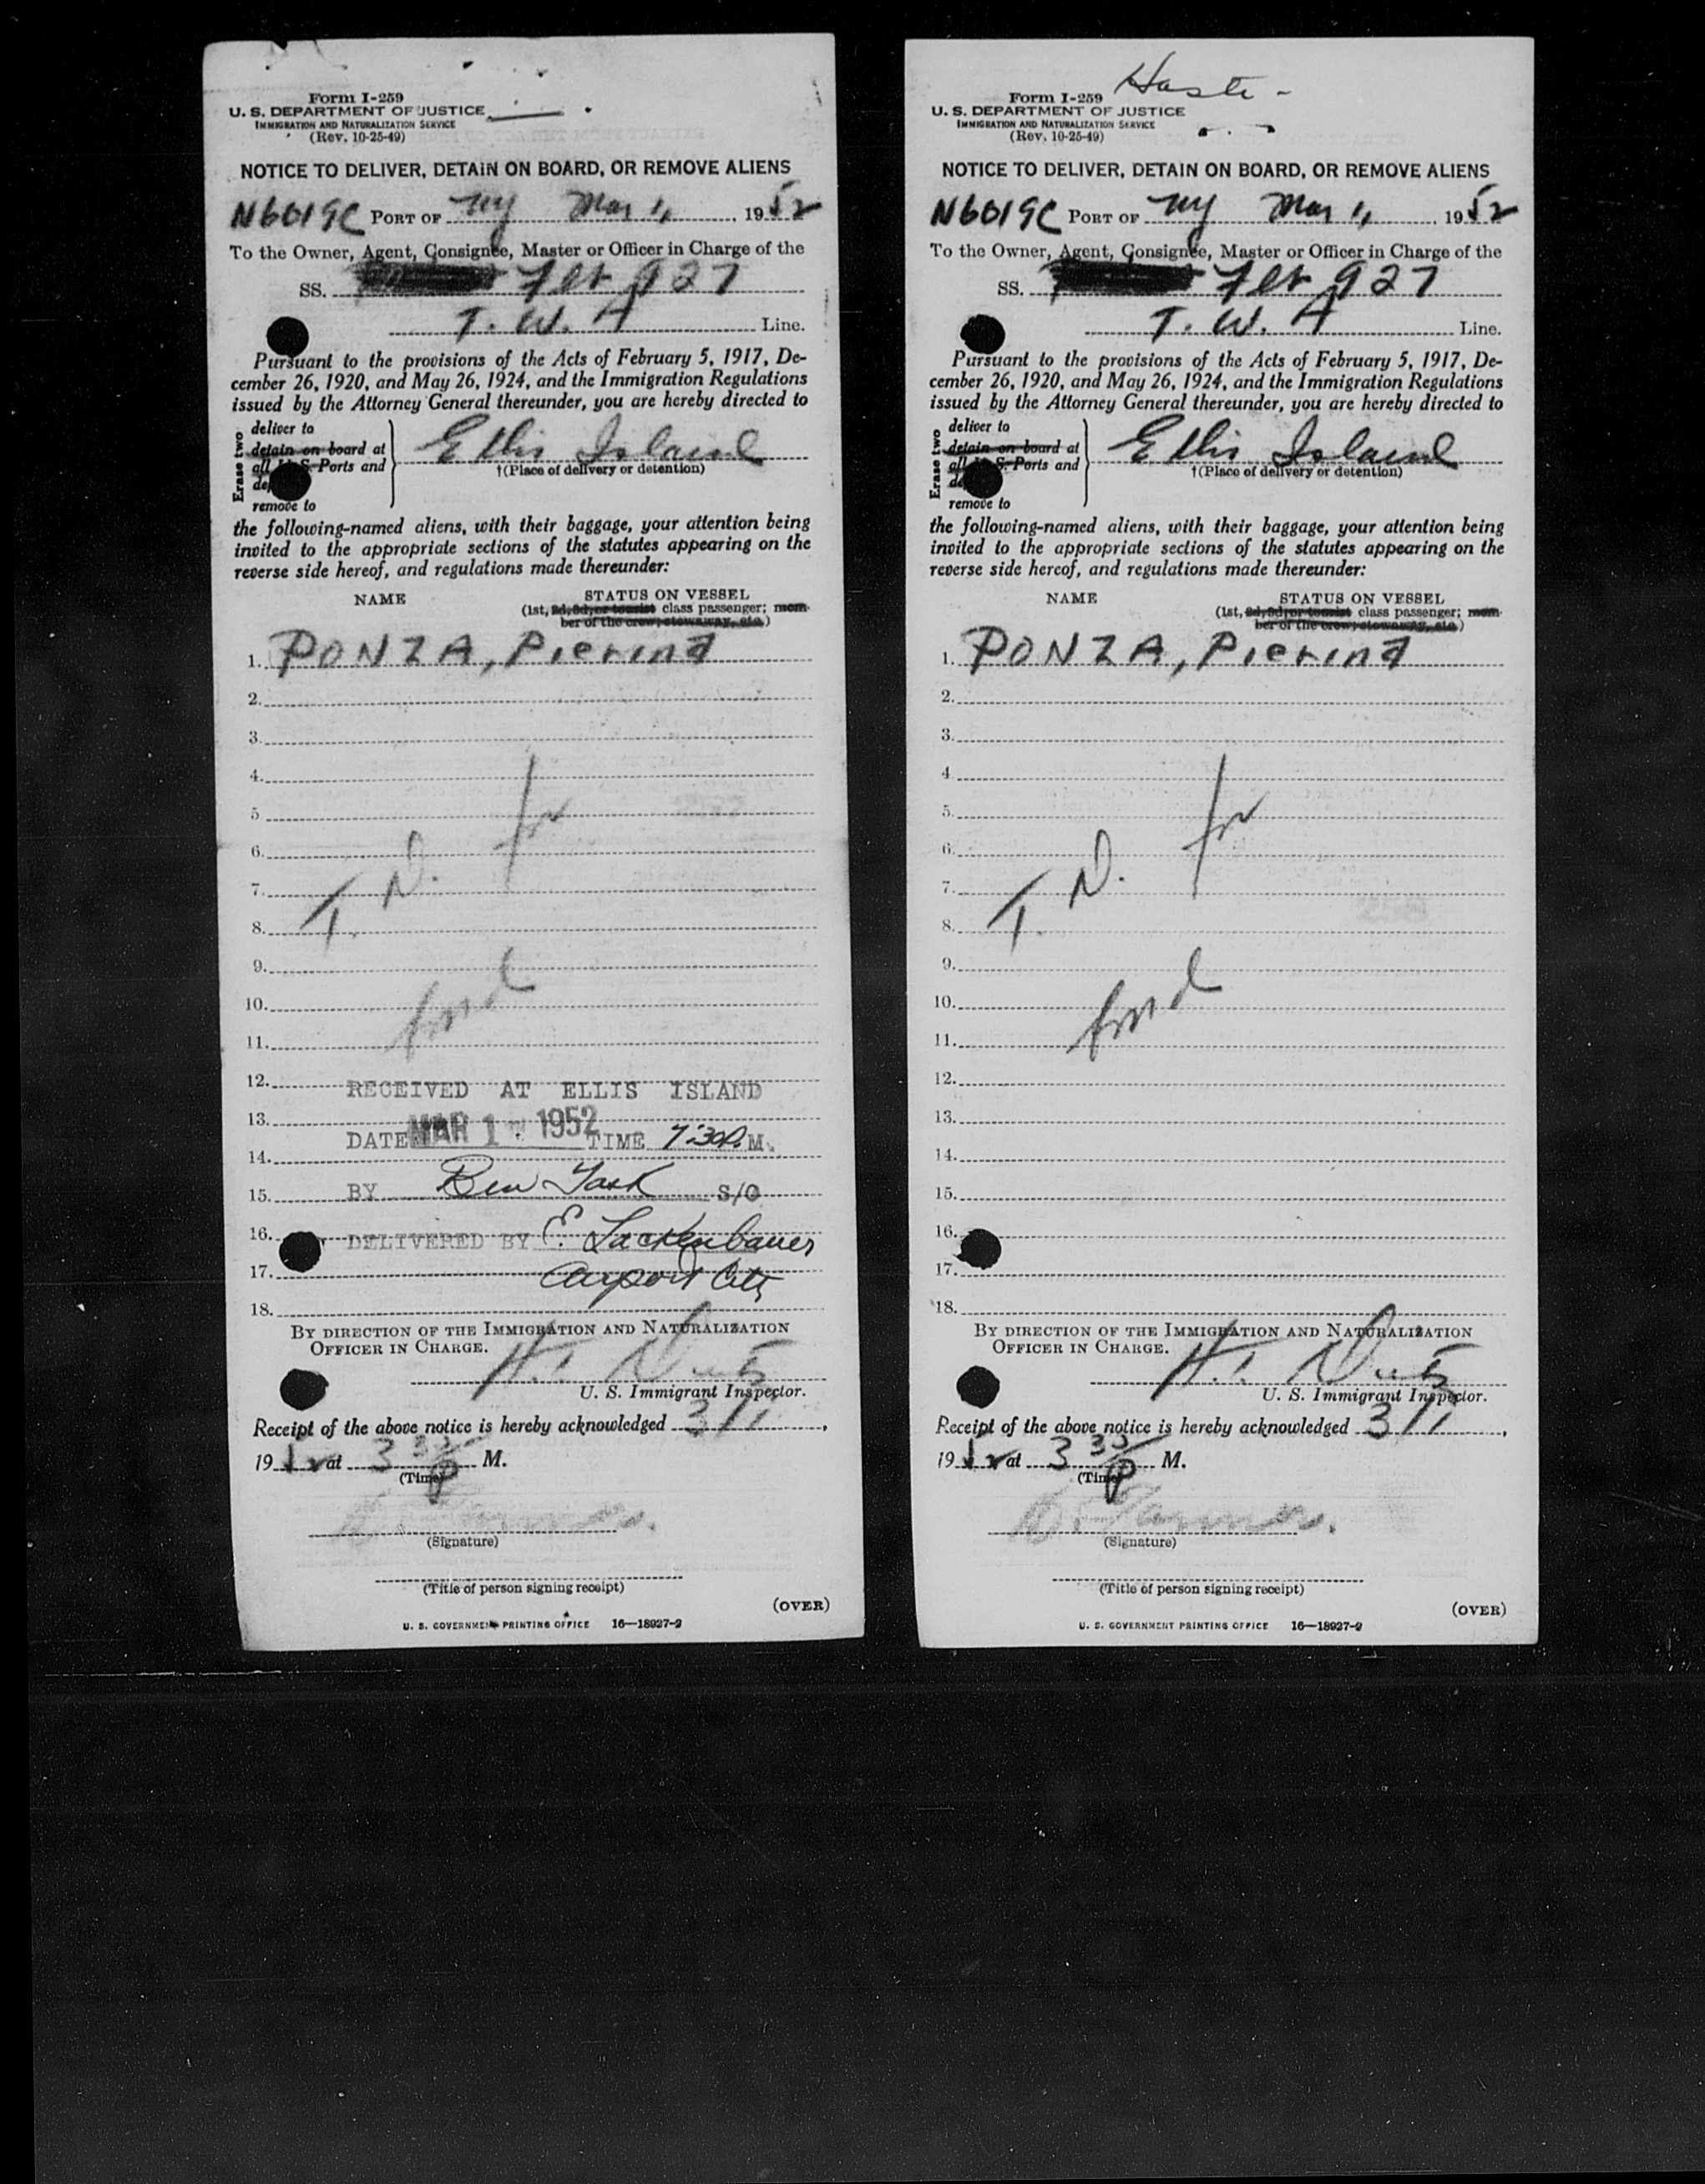 Form I-259
U. S. DEPARTMENT OF JUSTICE
IMMIGRATION AND NATURALIZATION SERVICE
(Rev. 10-25-49)
NOTICE TO DELIVER, DETAIN ON BOARD, OR REMOVE ALIENS
N6019C PORT OF NY Mar 1, 1952
To the Owner, Agent, Consignee, Master or Officer in Charge of the
SS. Flt 927
T. W. A Line.
Pursuant to the provisions of the Acts of February 5, 1917, De-
cember 26, 1920, and May 26, 1924, and the Immigration Regulations
issued by the Attorney General thereunder, you are hereby directed to
Erase two
deliver to
detain on board at
all U. S. Ports and
remove to
Ellis Island
†(Place of delivery or detention)
the following-named aliens, with their baggage, your attention being
invited to the appropriate sections of the statutes appearing on the
reverse side hereof, and regulations made thereunder:
NAME STATUS ON VESSEL
(1st, 2d, 3d, or tourist class passenger; mem-
ber of the crew; stowaway, etc.)
1. PONZA, Pierina
2.
3.
4.
5.
6.
7. D.
8. T.
9.
10.
11.
12. RECEIVED AT ELLIS ISLAND
13.
DATE MAR 1 1952 TIME 7:30P.M.
14.
15. BY Ben S/O
16. DELIVERED BY E. Lackenbauer
17. Airport City
18.
BY DIRECTION OF THE IMMIGRATION AND NATURALIZATION
OFFICER IN CHARGE.
H.
U. S. Immigrant Inspector.
Receipt of the above notice is hereby acknowledged 3/1,
1952 at 3 35 P M.
(Time)
(Signature)
(Title of person signing receipt)
(OVER)
U. S. GOVERNMENT PRINTING OFFICE 16—18927-2
Form I-259
U. S. DEPARTMENT OF JUSTICE
IMMIGRATION AND NATURALIZATION SERVICE
(Rev. 10-25-49)
NOTICE TO DELIVER, DETAIN ON BOARD, OR REMOVE ALIENS
N6019C PORT OF NY Mar 1, 1952
To the Owner, Agent, Consignee, Master or Officer in Charge of the
SS. Flt 927
T. W. A Line.
Pursuant to the provisions of the Acts of February 5, 1917, De-
cember 26, 1920, and May 26, 1924, and the Immigration Regulations
issued by the Attorney General thereunder, you are hereby directed to
Erase two
deliver to
detain on board at
all U. S. Ports and
remove to
Ellis Island
†(Place of delivery or detention)
the following-named aliens, with their baggage, your attention being
invited to the appropriate sections of the statutes appearing on the
reverse side hereof, and regulations made thereunder:
NAME STATUS ON VESSEL
(1st, 2d, 3d, or tourist class passenger; mem-
ber of the crew; stowaway, etc.)
1. PONZA, Pierina
2.
3.
4.
5.
6.
7. D.
8. T.
9.
10.
11.
12.
13.
14.
15.
16.
17.
18.
BY DIRECTION OF THE IMMIGRATION AND NATURALIZATION
OFFICER IN CHARGE.
H.
U. S. Immigrant Inspector.
Receipt of the above notice is hereby acknowledged 3/1,
1952 at 3 35 P M.
(Time)
(Signature)
(Title of person signing receipt)
(OVER)
U. S. GOVERNMENT PRINTING OFFICE 16—18927-2